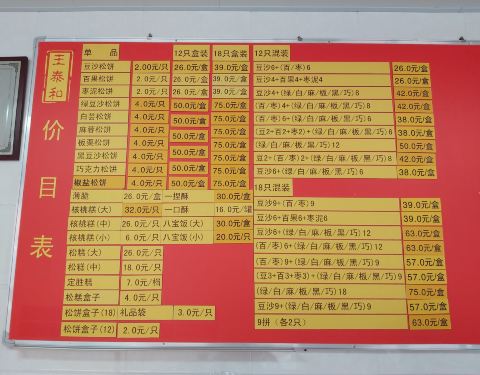 王泰和
价目表
单 品 12只盒装 18只盒装
豆沙松饼 2.00元/只 26.0元/盒 39.0元/盒
百果松饼 2.0元/只 26.0元/盒 39.0元/盒
枣泥松饼 2.0元/只 26.0元/盒 39.0元/盒
绿豆沙松饼 4.0元/只 50.0元/盒 75.0元/盒
白芸松饼 4.0元/只 50.0元/盒 75.0元/盒
麻蓉松饼 4.0元/只 50.0元/盒 75.0元/盒
板栗松饼 4.0元/只 50.0元/盒 75.0元/盒
黑豆沙松饼 4.0元/只 50.0元/盒 75.0元/盒
巧克力松饼 4.0元/只 50.0元/盒 75.0元/盒
椒盐松饼 4.0元/只 50.0元/盒 75.0元/盒
薄脆 26.0元/盒 一捏酥 30.0元/盒
核桃糕(大) 32.0元/只 一口酥 16.0元/罐
核桃糕(中) 26.0元/只 八宝饭(大) 30.0元/盒
核桃糕(小) 6.0元/只 八宝饭(小) 20.0元/只
松糕(大) 26.0元/只
松糕(中) 18.0元/只
定胜糕 7.0元/
松糕盒子 4.0元/只
松饼盒子(18) 礼品袋 3.0元/只
松饼盒子(12) 2.0元/只
12只混装
豆沙6+(百/枣)6 26.0元/盒
豆沙4+百果4+枣泥4 26.0元/盒
豆沙4+(绿/白/麻/板/黑/巧)8 42.0元/盒
(百/枣)4+(绿/白/麻/板/黑/巧)8 42.0元/盒
豆沙6+(绿/白/麻/板/黑/巧)6 38.0元/盒
(百/枣)6+(绿/白/麻/板/黑/巧)6 38.0元/盒
(豆2+百2+枣2)+(绿/白/麻/板/黑/巧)6 38.0元/盒
(绿/白/麻/板/黑/巧)12 50.0元/盒
豆2+(百/枣)2+(绿/白/麻/板/黑/巧)8 42.0元/盒
豆沙6+(绿/白/麻/板/黑/巧)6 38.0元/盒
18只混装
豆沙9+(百/枣)9 39.0元/盒
豆沙6+百果6+枣泥6 39.0元/盒
豆沙6+(绿/白/麻/板/黑/巧)12 63.0元/盒
(百/枣)6+(绿/白/麻/板/黑/巧)12 63.0元/盒
(百/枣)9+(绿/白/麻/板/黑/巧)9 57.0元/盒
(豆3+百3+枣3)+(绿/白/麻/板/黑/巧)9 57.0元/盒
(绿/白/麻/板/黑/巧)18 75.0元/盒
豆沙9+(绿/白/麻/板/黑/巧)9 57.0元/盒
9拼(各2只) 63.0元/盒